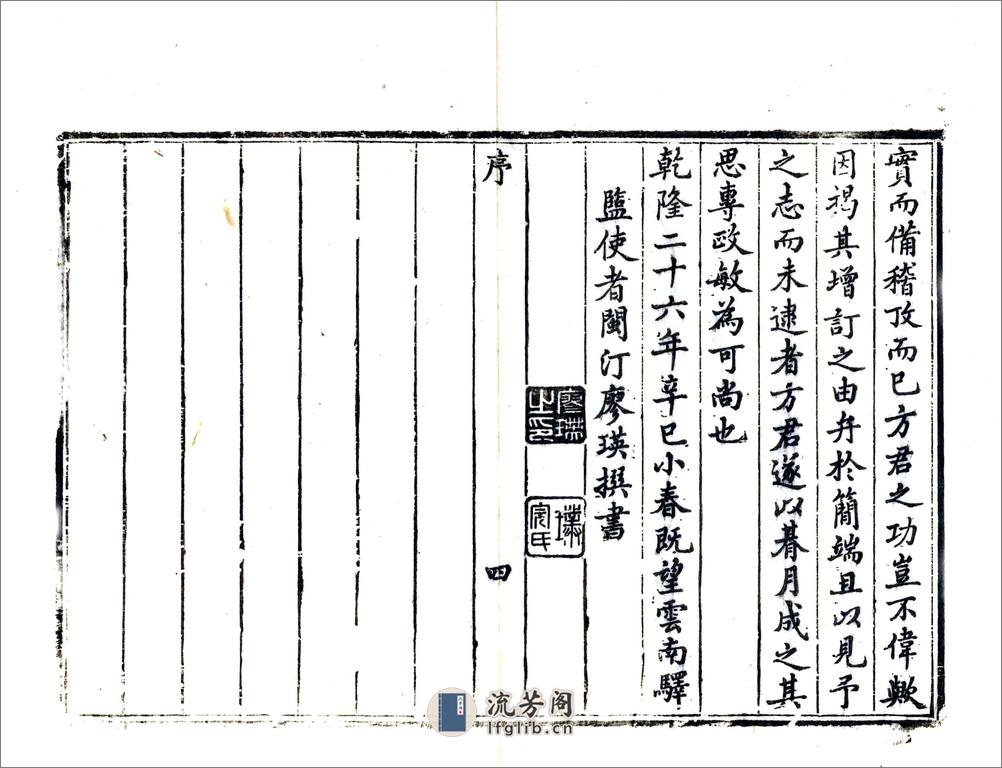 實而備稽攷而已方君之功豈不偉歟
因揭其增訂之由弁於簡端且以見予
之志而未逮者方君遂以朞月成之其
思專政敏為可尚也
乾隆二十六年辛巳小春既望雲南驛
鹽使者閩汀廖瑛撰書
廖瑛之印
璞完氏
序
四
流芳阁
lfglib.cn